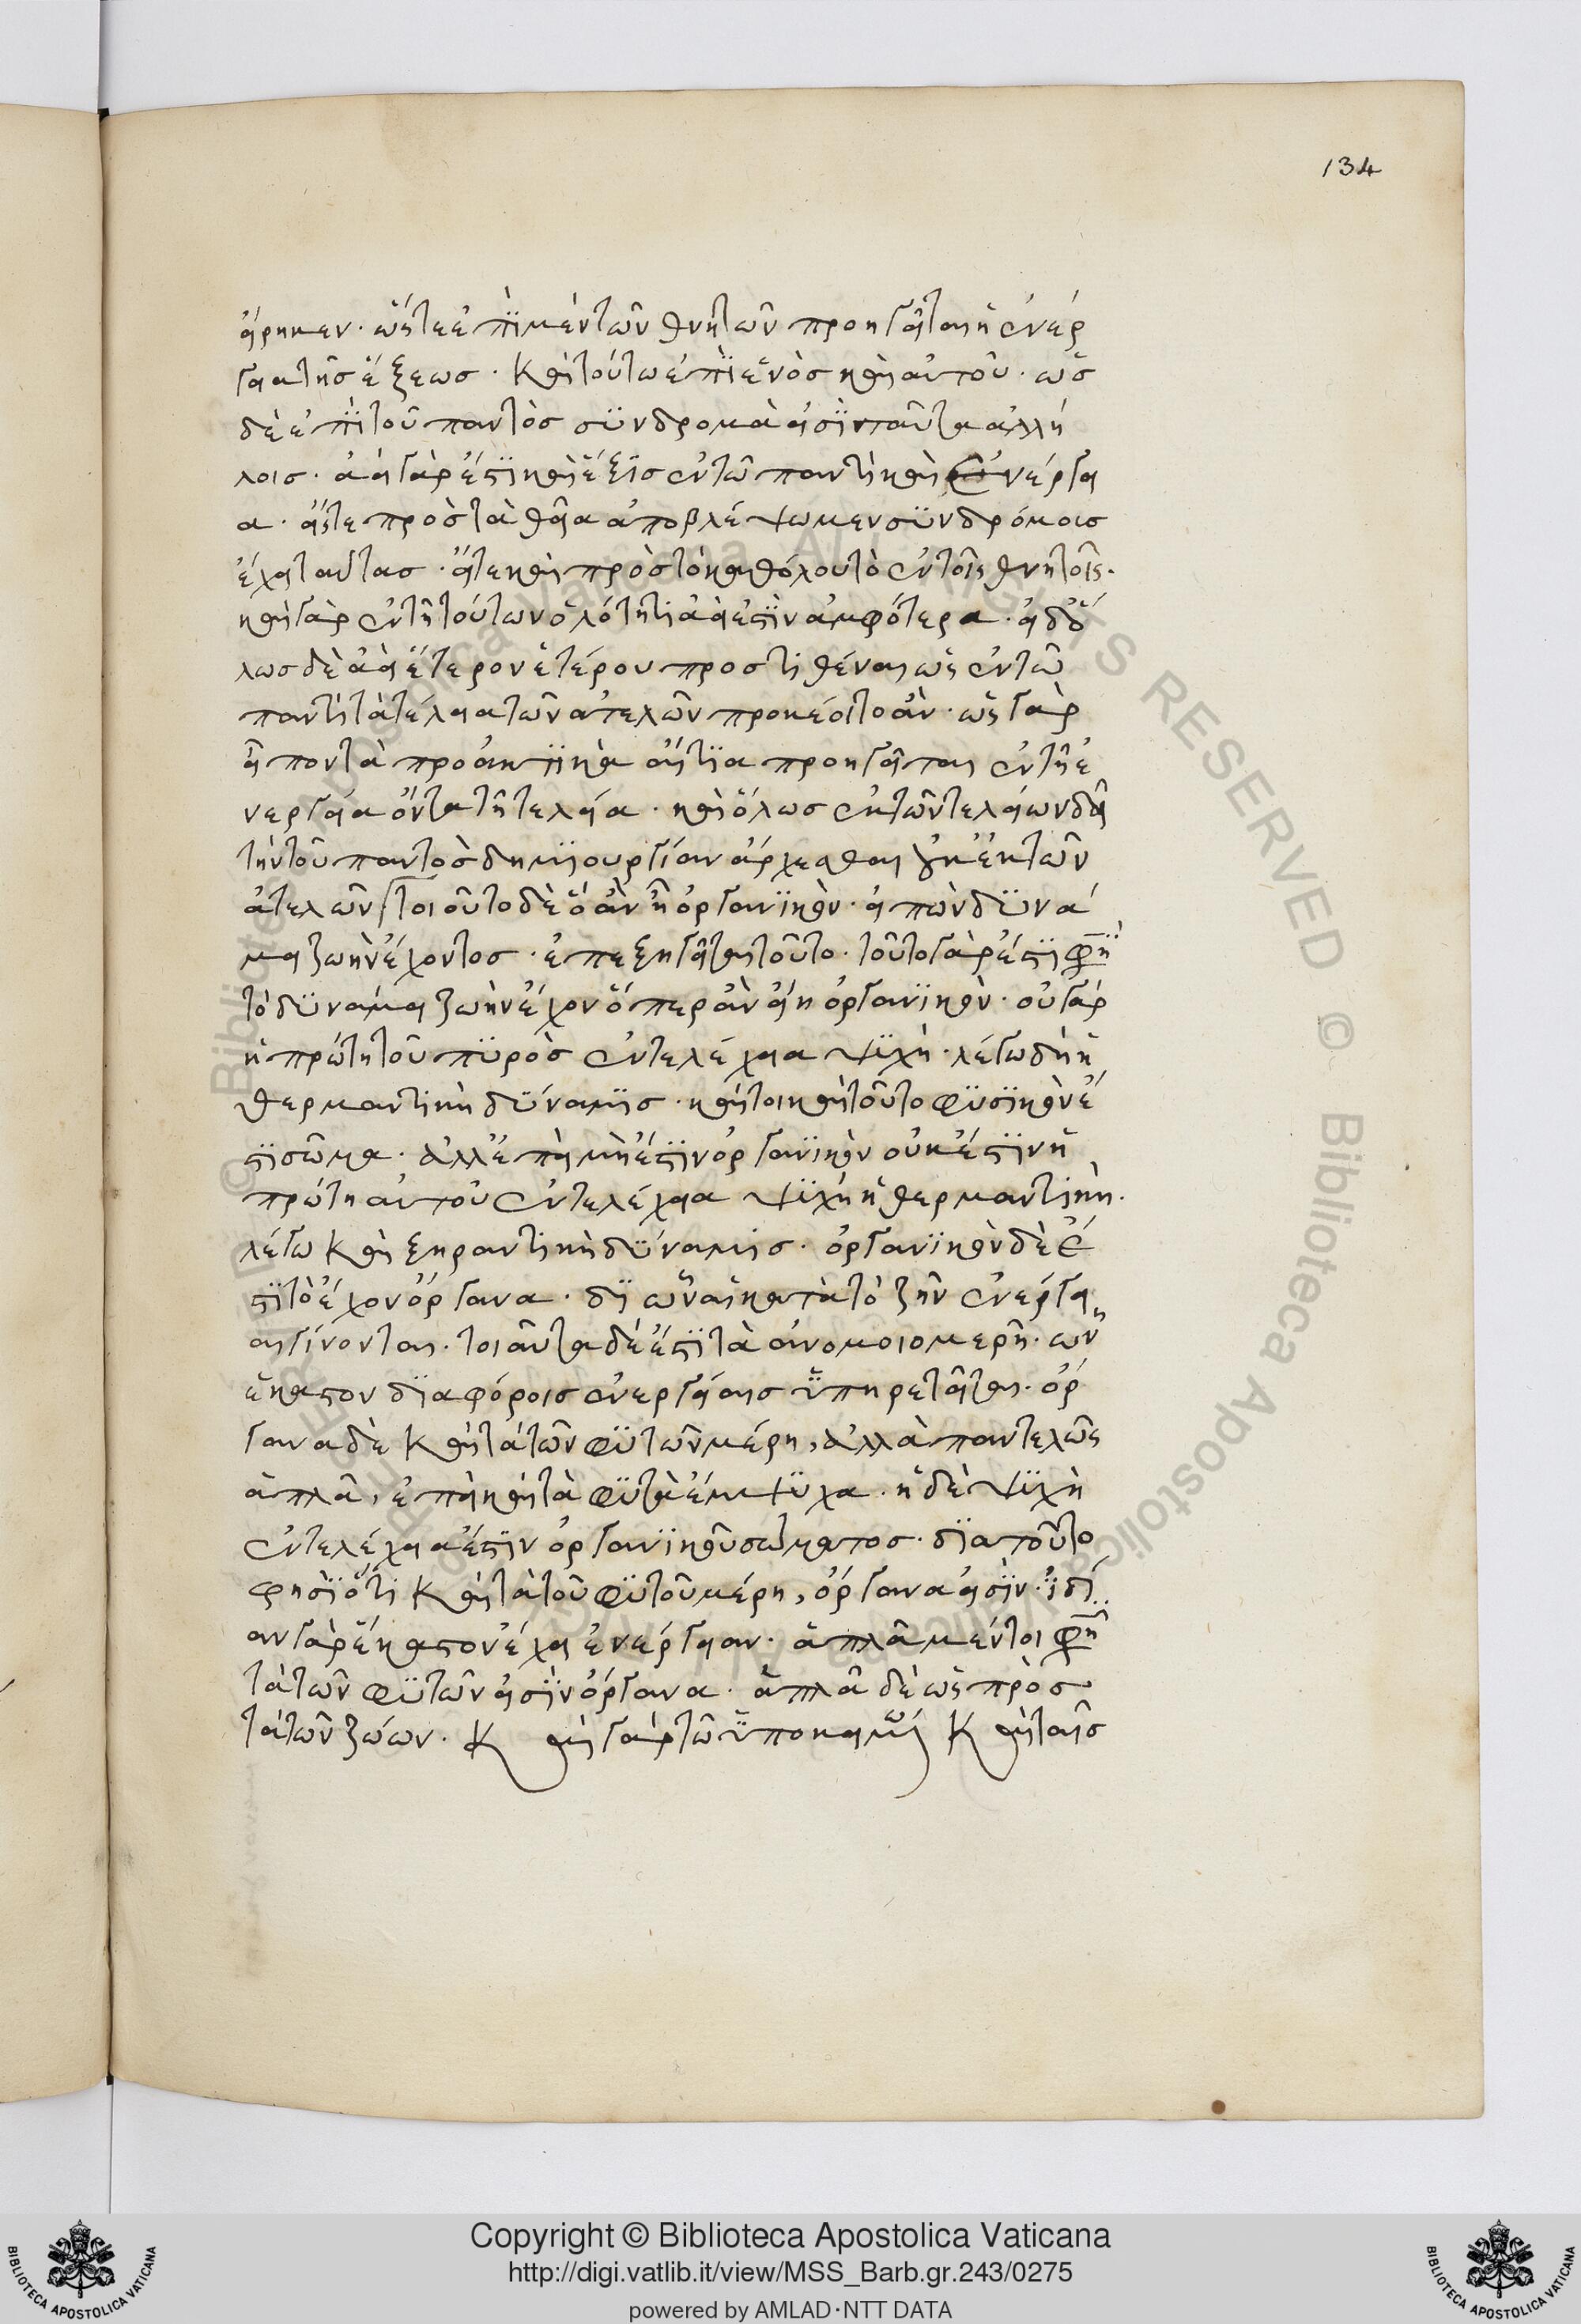 134
εἴρηκεν. ὥστε ἐπὶ μὲν τῶν θνητῶν προηγεῖται ἡ ἐνέρ
γεια τῆς ἕξεως. καὶ τούτω ἐπὶ ἑνὸς καὶ αυτοῦ. ὡς
δὲ ἐπὶ τοῦ παντὸς σύνδρομα εἰσὶν ταῦτα ἀλλή
λοις. ἀεὶ γάρ ἐστι καὶ ἕξις ἐν τῶ παντὶ καὶ ἐνέργει
α. εἴτε πρὸς τὰ θεῖα ἀποβλέψωμεν συνδρόμοις
ἔχει ταύτας. εἴτε καὶ πρὸς τὸ καθόλου τὸ ἐν τοῖς θνητοῖς.
καὶ γὰρ ἐν τῆ τούτων ὁλότητι ἀεὶ ἐστὶν ἀμφότερα. εἰ δ' ὅ
λως δὲ ἀεὶ ἕτερον ἑτέρου προστιθέναι ὡς ἐν τῶ
παντὶ τὰ τέλεια τῶν ἀτελῶν προκέοιτο ἄν. ὡς γὰρ
εἴπον τὰ προακτικὰ αἴτια προηγεῖται ἐν τῆ ἐ
νεργεία ὄντα τῆ τελεία. καὶ ὅλως ἐκ τῶν τελείων δεῖ
τὴν τοῦ παντὸς δημιουργίαν ἄρχεσθαι οὐκ ἐκ τῶν
ἀτελῶν τοιοῦτο δὲ ὃ ἂν ἦ ὀργανικόν. εἰπὼν δυνά
μει ζωὴν ἔχοντος. ἐπεξηγεῖται τοῦτο. τοῦτο γάρ ἐστι φη
τὸ δυνάμει ζωὴν ἔχον ὅπερ ἂν εἴη ὀργανικὸν. οὐ γάρ
ἡ πρώτη τοῦ πυρὸς ἐντελέχεια ψυχὴ. λέγω δὴ ἡ
θερμαντικὴ δύναμις. καί τοι καὶ τοῦτο φυσικὸν ἐ
στι σῶμα. ἀλλ' ἐπεὶ μὴ ἐστὶν ὀργανικὸν οὐκ ἐστὶν ἡ
πρώτη αυτοῦ ἐντελέχεια ψυχὴ ἡ θερμαντικὴ.
λέγω καὶ ξηραντικὴ δύναμις. ὀργανικὸν δὲ ἐ
στι τὸ ἔχον ὄργανα. δι' ὧν αἱ κατὰ τὸ ζῆν ἐνέργει
αι γίνονται. τοιαῦτα δέ ἐστι τὰ ἀνομοιομερῆ. ὧν
ἕκαστον διαφόροις ἐνεργείαις ὑπηρετεῖται. ὄρ
γανα δὲ καὶ τὰ τῶν φυτῶν μέρη, ἀλλὰ παντελῶς
ἁπλᾶ, ἐπεὶ καὶ τὰ φυτὰ ἔμψυχα. ἡ δὲ ψυχὴ
ἐντελέχεια ἐστὶν ὀργανικοῦ σώματος. διὰ τοῦτο
φησὶ ὅτι καὶ τὰ τοῦ φυτοῦ μέρη, ὄργανα εἰσὶν. ἰδί
αν γὰρ ἕκαστον ἔχει ἐνέργειαν. ἁπλᾶ μέντοι φη
τὰ τῶν φυτῶν εἰσὶν ὄργανα. ἁπλᾶ δὲ ὡς πρὸς
τὰ τῶν ζώων. καὶ γάρ τῶ ὑποκειμέ καὶ ταῖς
Copyright © Biblioteca Apostolica Vaticana
http://digi.vatlib.it/view/MSS_Barb.gr.243/0275
powered by AMLAD·NTT DATA